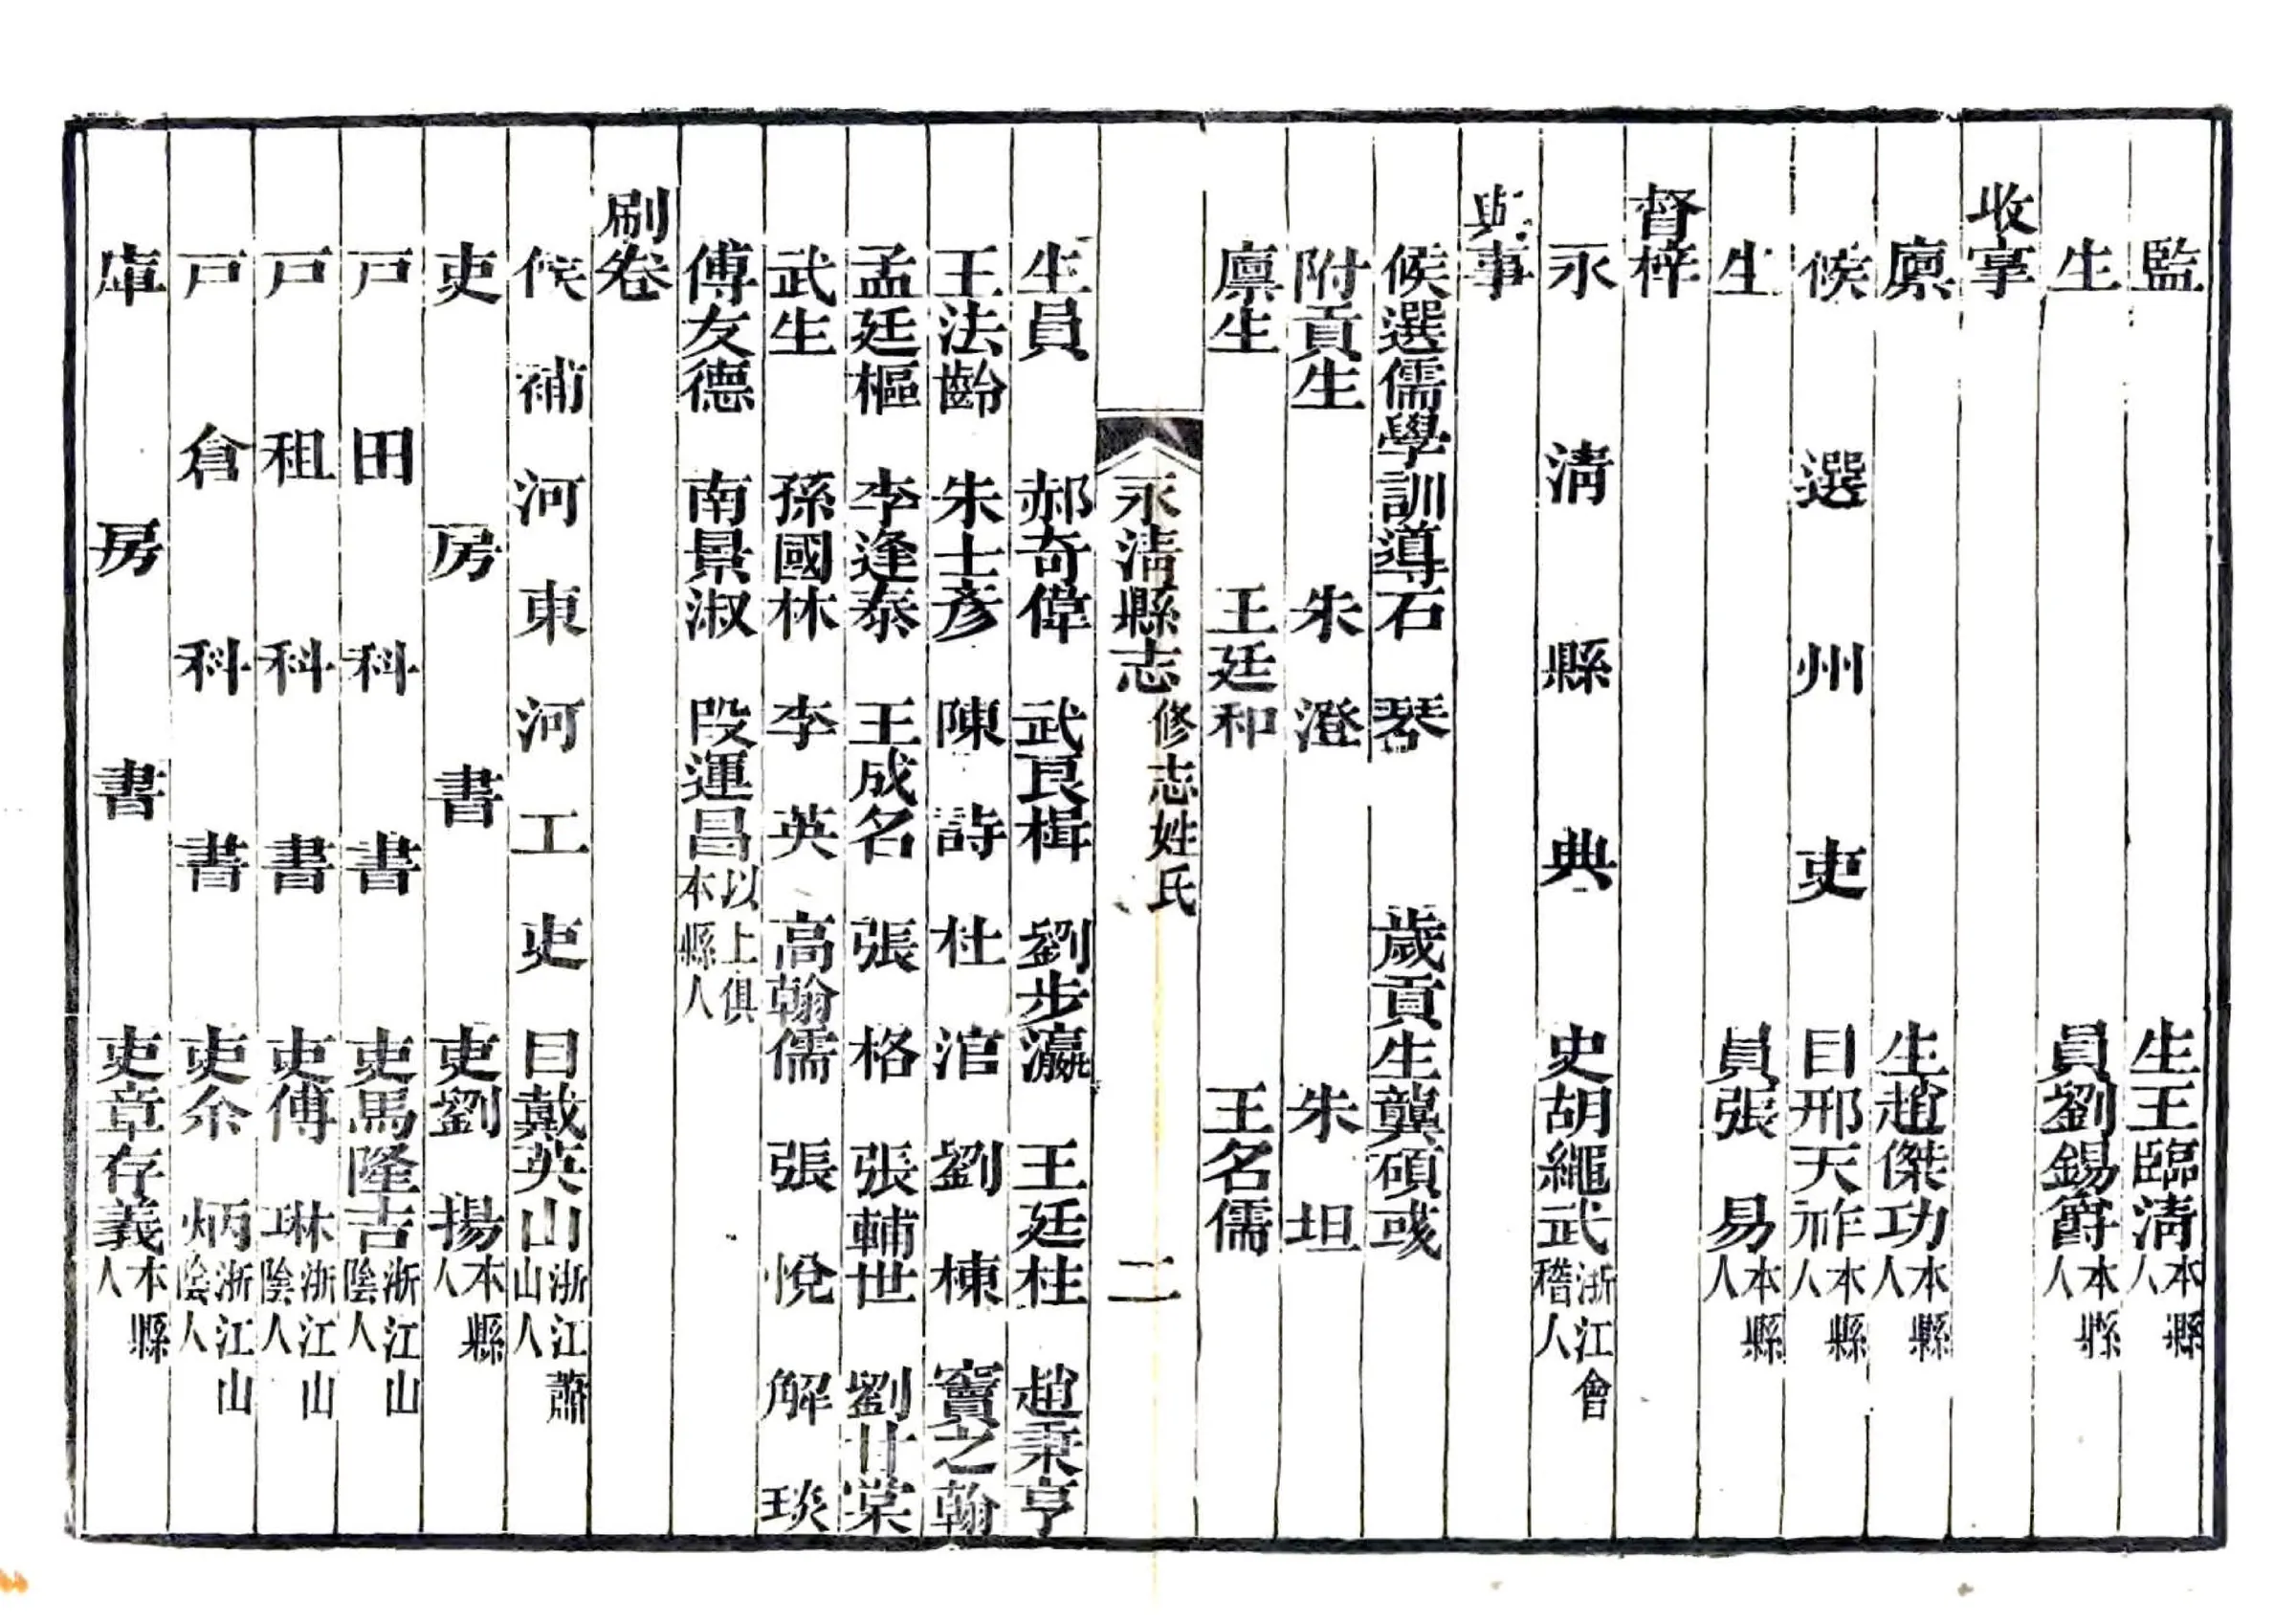 監生王臨清本縣人
生員劉錫爵本縣人
收掌
廪生趙傑功本縣人
候選州吏目邢天祚本縣人
生員張易本縣人
督梓
永清縣典史胡繩武浙江會稽人
與事
候選儒學訓導石琴 歲貢生龔碩彧
附貢生 朱澄 朱坦
廪生 王廷和 王名儒
永清縣志 修志姓氏 二
生員 郝奇偉 武良楫 劉步瀛 王廷柱 趙秉亨
王法齡 朱士彥 陳詩 杜涫 劉棟 竇之翰
孟廷樞 李逢泰 王成名 張格 張輔世 劉甘棠
武生 孫國林 李英 高翰儒 張悅 解琰
傅友德 南景淑 段運昌以上俱本縣人
刷卷
候補河東河工吏目戴英山浙江蕭山人
吏房書吏劉揚本縣人
戸田科書吏馬隆吉浙江山陰人
戸租科書吏傅琳浙江山陰人
戸倉科書吏余炳浙江山陰人
庫房書吏章存義本縣人